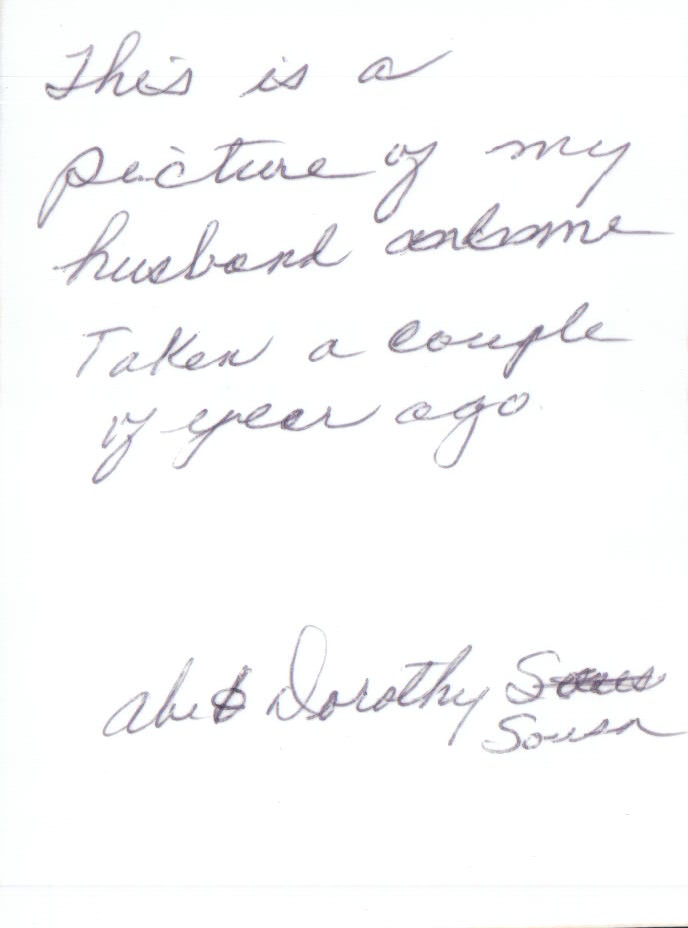 This is a
picture of my
husband and me
Taken a couple
of year ago
Abe & Dorothy
Sousa